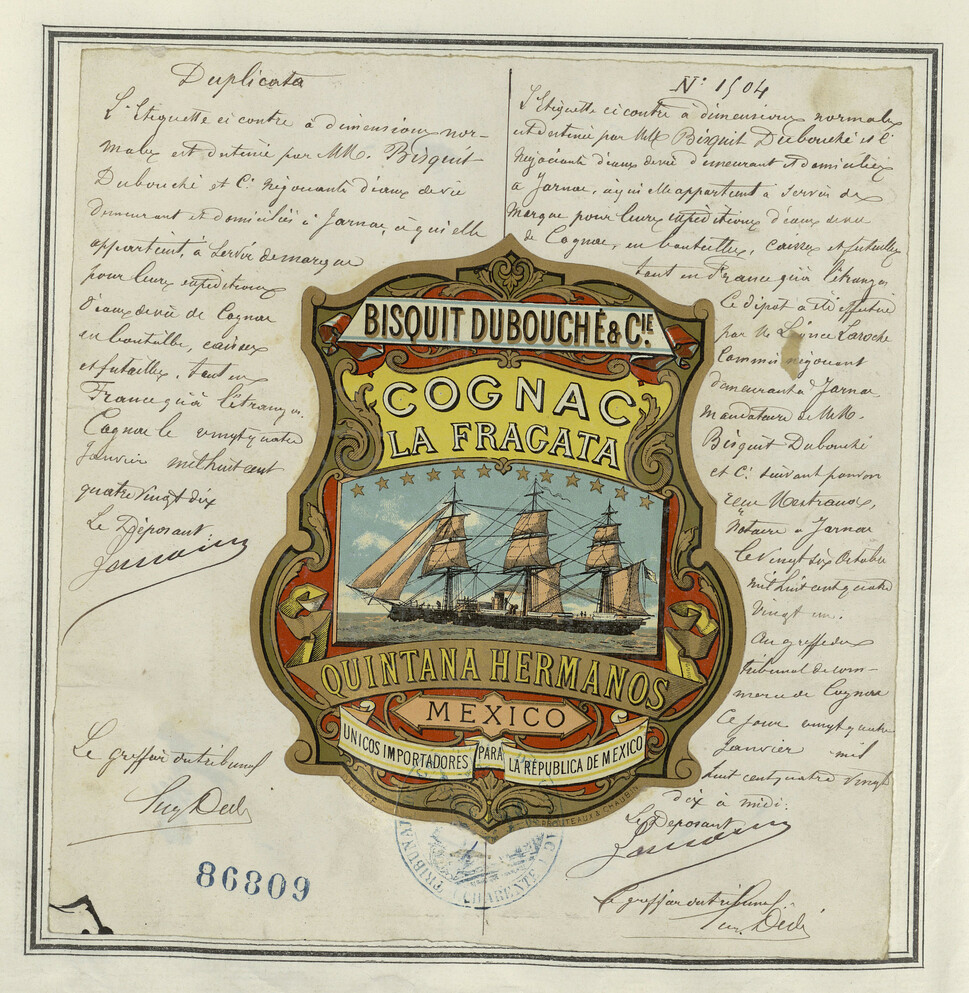 Duplicata
L'Etiquette ci contre à dimensions nor-
males est destinée par MM. Bisquit
Dubouché et Cie négociants d'eaux de vie
demeurant et domiciliés à Jarnac, à qui elle
appartient, à servir de marque
pour leurs expéditions
d'eaux de vie de Cognac
en bouteilles, caisses
et futailles, tant en
France qu'à l'étranger.
Cognac le vingt quatre
Janvier mil huit cent
quatre vingt dix
Le Déposant
Le greffier du tribunal
86809
N° 1504
L'Etiquette ci contre à dimensions normales
est destinée par MM. Bisquit Dubouché et Cie
négociants d'eaux de vie demeurant et domiciliés
à Jarnac, à qui elle appartient à servir de
marque pour leurs expéditions d'eaux de vie
de Cognac, en bouteilles, caisses et futailles
tant en France qu'à l'étranger
Ce dépôt a été effectué
par M. Laroche
Commis négociant
demeurant à Jarnac
Mandataire de MM.
Bisquit Dubouché
et Cie suivant pouvoir
reçu
Notaire à Jarnac
le vingt six Octobre
mil huit cent quatre
vingt un.
Au greffe du
tribunal de com-
merce de Cognac
Ce jour vingt quatre
Janvier mil
huit cent quatre vingt
dix à midi.
Le Déposant
Le greffier du tribunal
BISQUIT DUBOUCHÉ & CIE.
COGNAC
LA FRAGATA
QUINTANA HERMANOS
MEXICO
UNICOS IMPORTADORES PARA LA RÉPUBLICA DE MEXICO
TRIBUNAL
CHARENTE